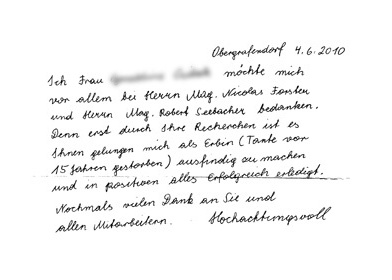 Obergrafendorf 4.6.2010
Ich Frau möchte mich
vor allem bei Herrn Mag. Nicolas Forster
und Herrn Mag. Robert Seebacher bedanken.
Denn erst durch Ihre Recherchen ist es
Ihnen gelungen mich als Erbin (Tante vor
15 Jahren gestorben) ausfindig zu machen
und in positiven alles Erfolgreich erledigt.
Nochmals vielen Dank an Sie und
allen Mitarbeitern. Hochachtungsvoll